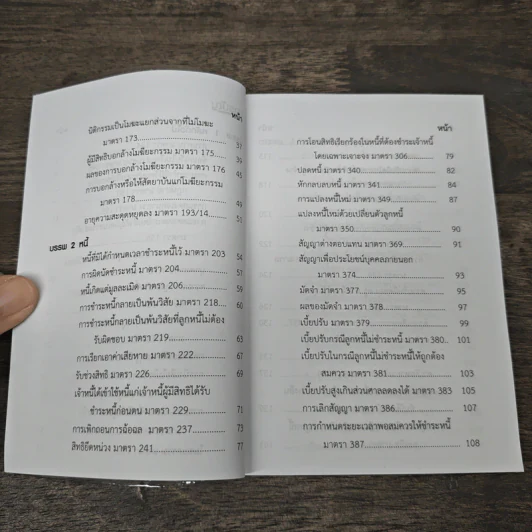 หน้า
นิติกรรมเป็นโมฆะแยกส่วนจากที่ไม่โมฆะ
มาตรา 173 31
ผู้มีสิทธิบอกล้างโมฆียะกรรม มาตรา 175
ผลของการบอกล้างโมฆียะกรรม มาตรา 176 41
การบอกล้างหรือให้สัตยาบันแก่โมฆียะกรรม
มาตรา 178
อายุความสะดุดหยุดลง มาตรา 193/14 51
บรรพ 2 หนี้
หนี้ที่มิได้กำหนดเวลาชำระหนี้ไว้ มาตรา 203 54
การผิดนัดชำระหนี้ มาตรา 204 57
หนี้เกิดแต่มูลละเมิด มาตรา 206 59
การชำระหนี้กลายเป็นพ้นวิสัย มาตรา 218 60
การชำระหนี้กลายเป็นพ้นวิสัยที่ลูกหนี้ไม่ต้อง
รับผิดชอบ มาตรา 219 63
การเรียกเอาค่าเสียหาย มาตรา 222 67
รับช่วงสิทธิ มาตรา 226 69
เจ้าหนี้ได้เข้าใช้หนี้แก่เจ้าหนี้ผู้มีสิทธิได้รับ
ชำระหนี้ก่อนตน มาตรา 229 71
การเพิกถอนการฉ้อฉล มาตรา 237 73
สิทธิยึดหน่วง มาตรา 241 77
หน้า
การโอนสิทธิเรียกร้องในหนี้ที่ต้องชำระเจ้าหนี้
โดยเฉพาะเจาะจง มาตรา 306 79
ปลดหนี้ มาตรา 340 82
หักกลบลบหนี้ มาตรา 341 84
การแปลงหนี้ใหม่ มาตรา 349 87
แปลงหนี้ใหม่ด้วยเปลี่ยนตัวลูกหนี้
มาตรา 350 90
สัญญาต่างตอบแทน มาตรา 369 91
สัญญาเพื่อประโยชน์บุคคลภายนอก
มาตรา 374 93
มัดจำ มาตรา 377 95
ผลของมัดจำ มาตรา 378 97
เบี้ยปรับ มาตรา 379 99
เบี้ยปรับกรณีลูกหนี้ไม่ชำระหนี้ มาตรา 380 101
เบี้ยปรับในกรณีลูกหนี้ไม่ชำระหนี้ให้ถูกต้อง
สมควร มาตรา 381 103
เบี้ยปรับสูงเกินส่วนศาลลดลงได้ มาตรา 383 105
การเลิกสัญญา มาตรา 386 107
การกำหนดระยะเวลาพอสมควรให้ชำระหนี้
มาตรา 387 108